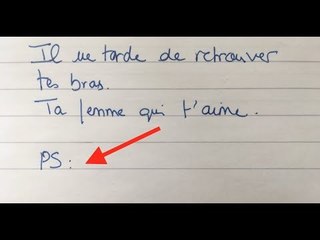 Il me tarde de retrouver
tes bras.
Ta femme qui t'aime.
PS: